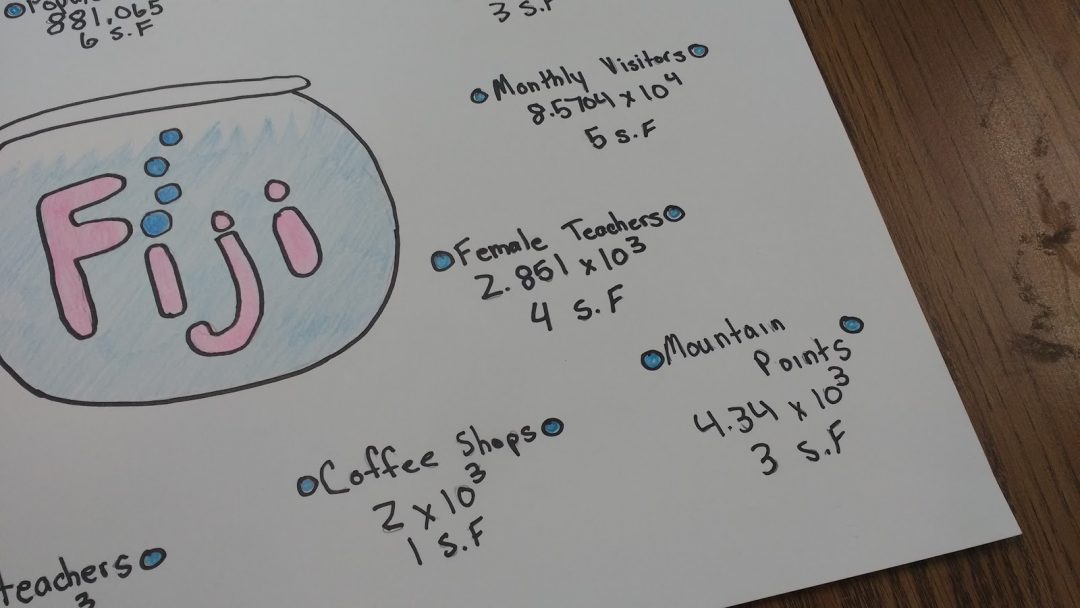 881,065
6 S.F
3 S.F
Monthly Visitors
8.5704 x 10⁴
5 S.F
Fiji
Female Teachers
2.851 x 10³
4 S.F
Mountain
Points
4.34 x 10³
3 S.F
Coffee Shops
2 x 10³
1 S.F
teachers
3